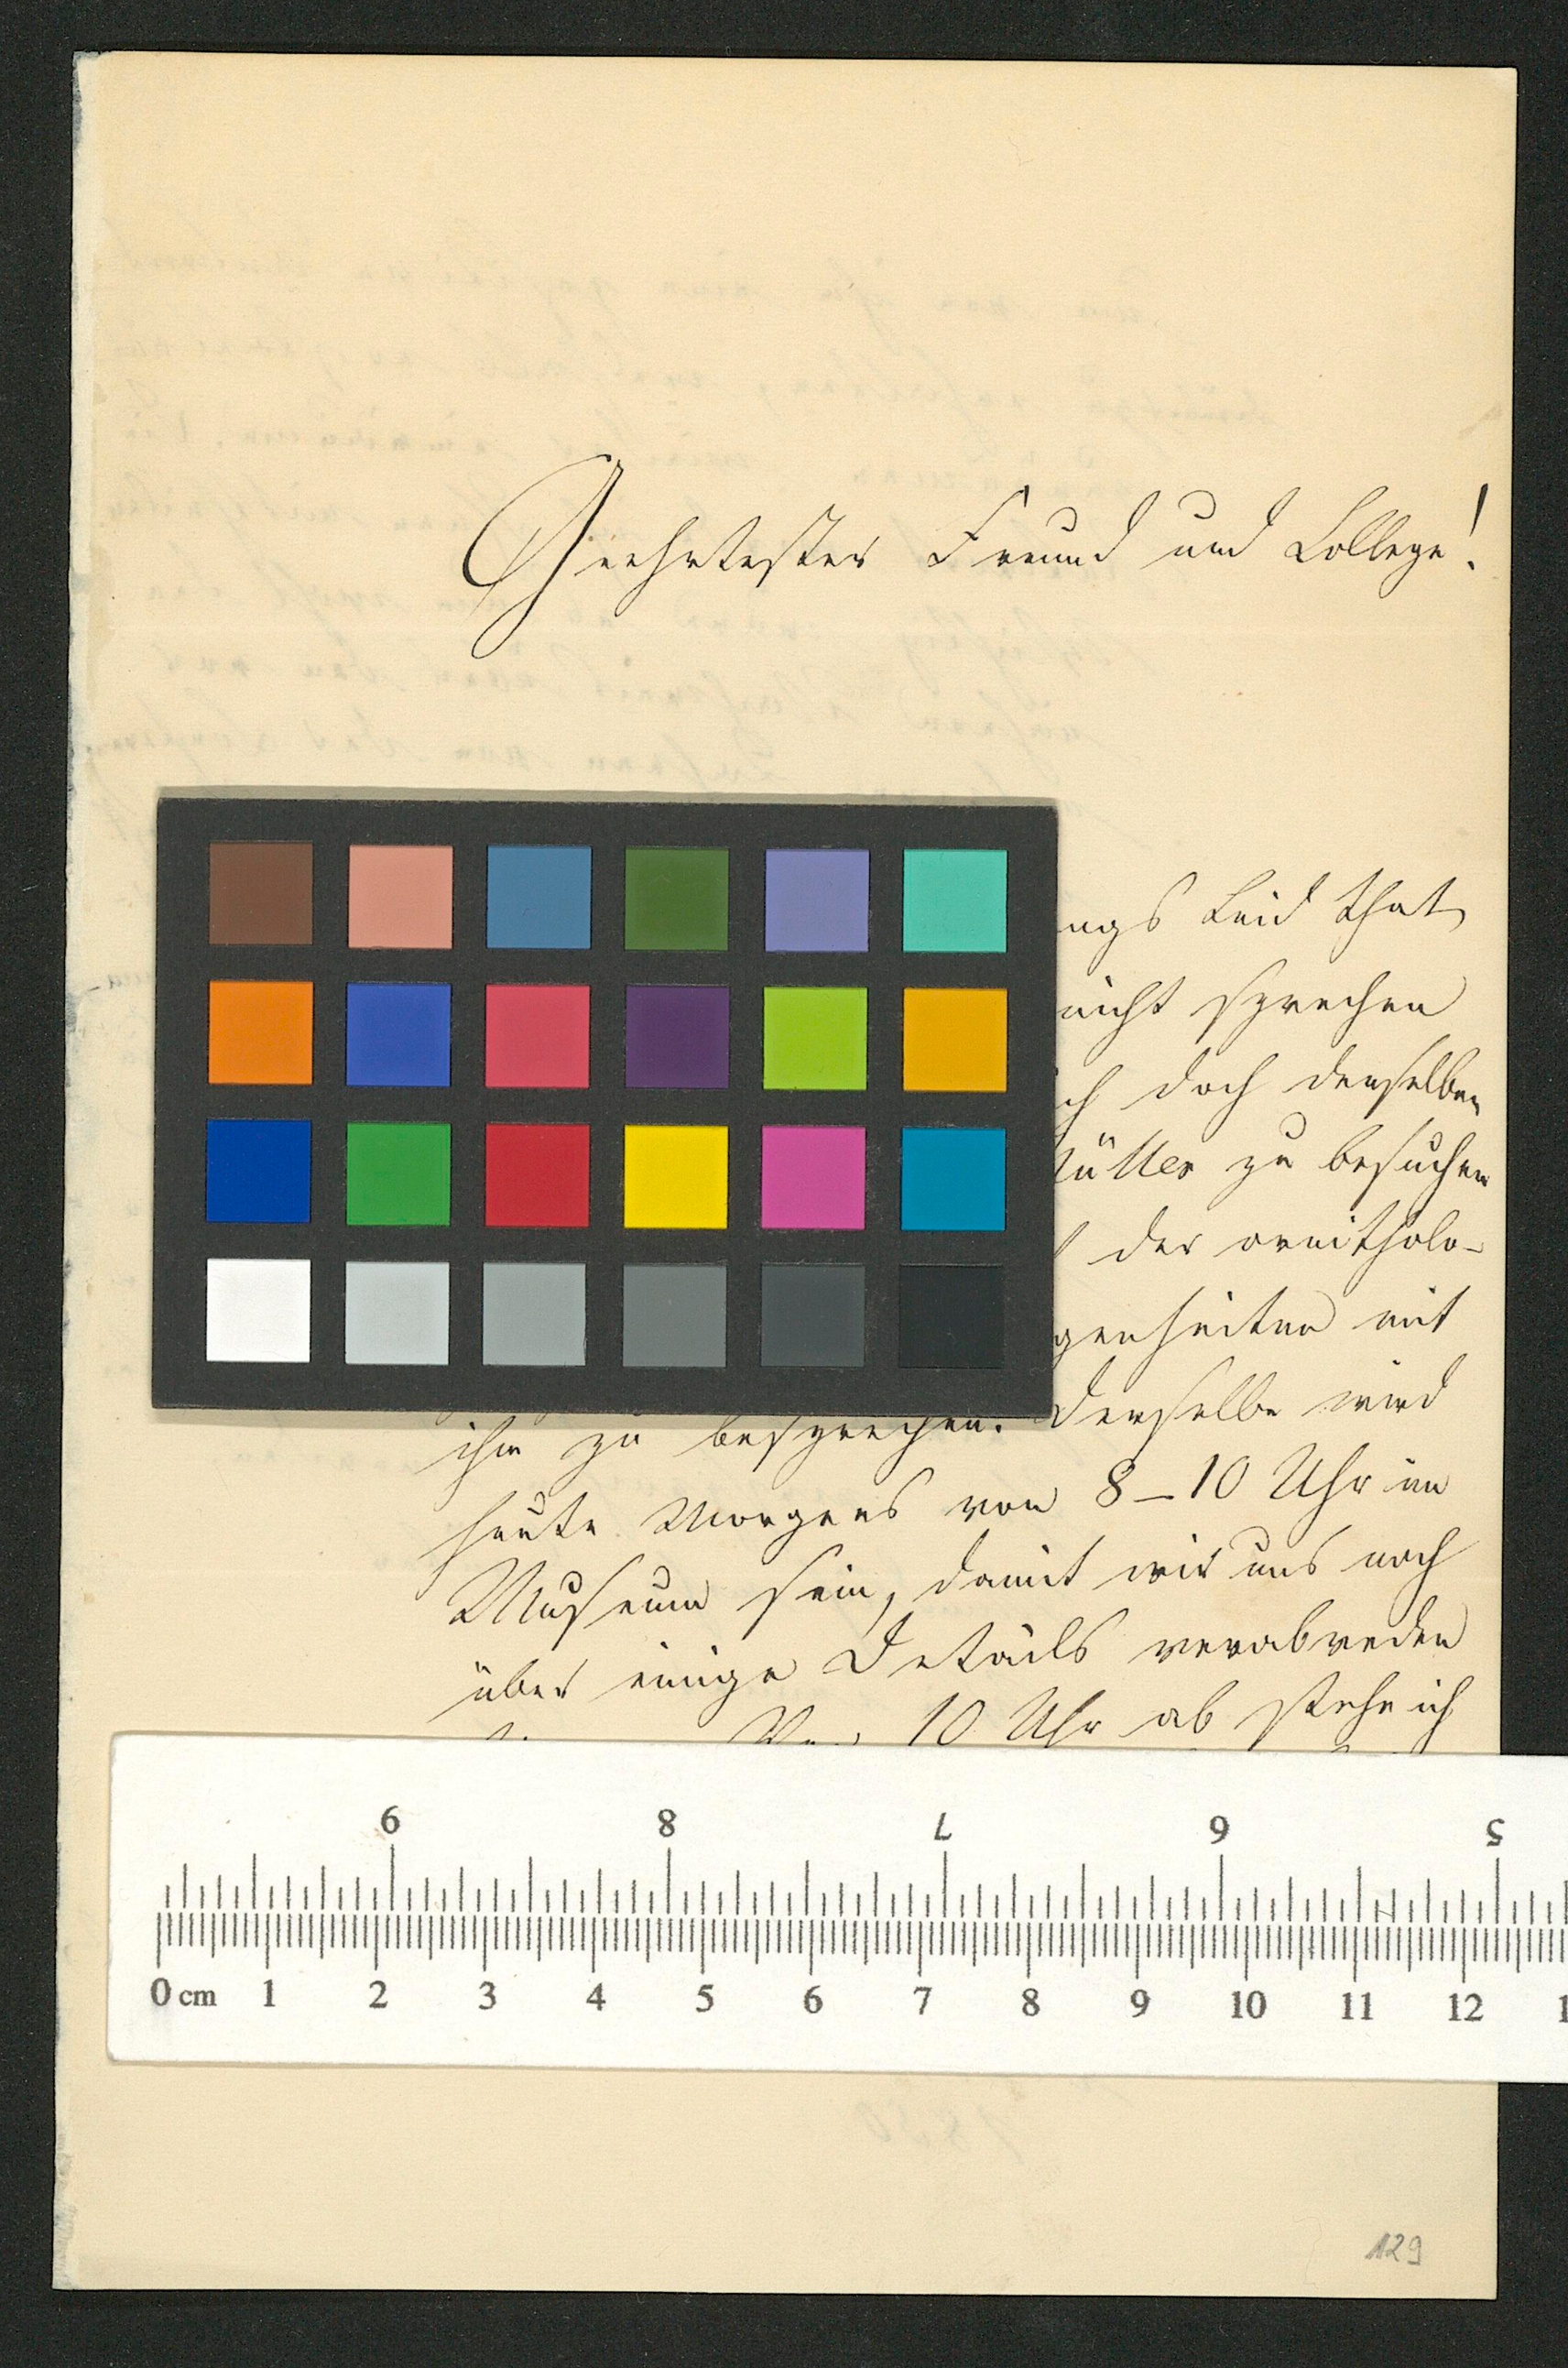 Geehrtester Freund und College!
ngs Leid that,
nicht sprechen
ch doch denselben
Müller zu besuchen
der ornitholo-
genheiten mit
ihm zu besprechen. Derselbe wird
heute Morgens von 8–10 Uhr im
Museum sein, damit wir uns noch
über einige Details verabreden
10 Uhr ab stehe ich
9 8 7 6 5
0 cm 1 2 3 4 5 6 7 8 9 10 11 12 1
129